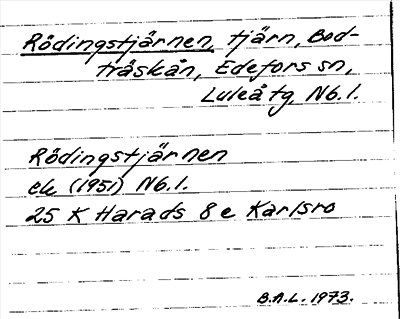 Rödingstjärnen, tjärn, Bod-
träskån, Edefors sn,
Luleå tg Nb.l.
Rödingstjärnen
ek (1951) Nb.l.
25 K Harads 8 e Karlsro
B.A.L. 1973.